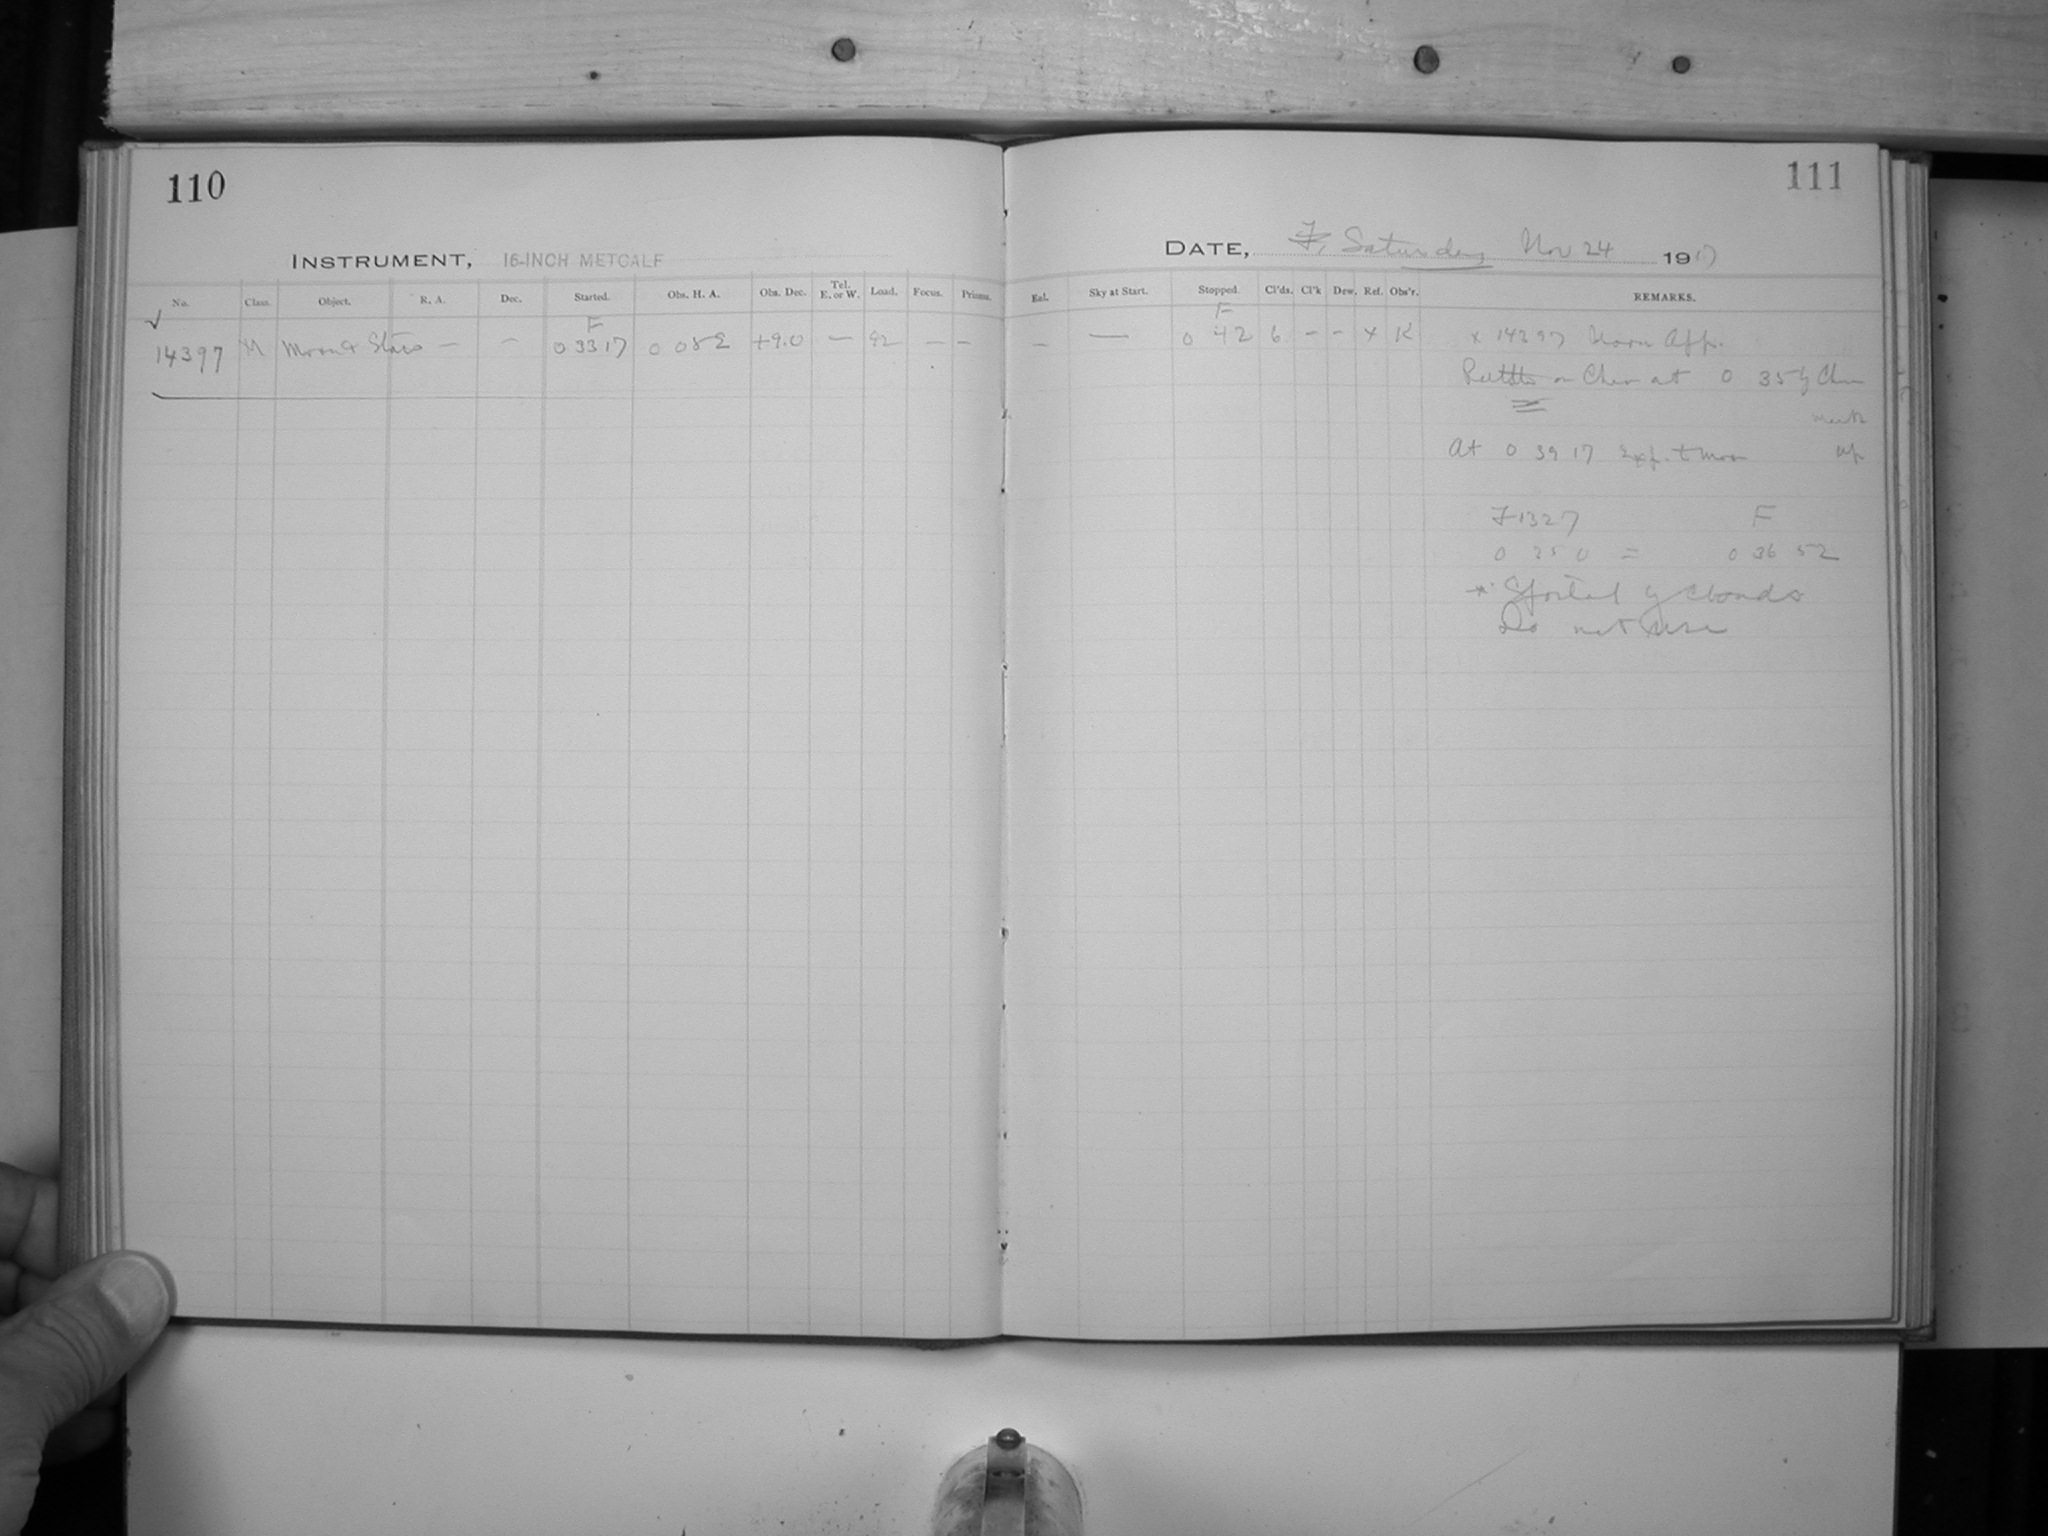 110
INSTRUMENT, 16-INCH METCALF
No. Class. Object. R. A. Dec. Started. Obs. H. A. Obs. Dec. Tel. E. or W. Load. Focus. Prisms.
F
14397 M Moon & Stars — — 0 33 17 0 05 E +9.0 — — —
111
DATE, Saturday Nov 24 1917
Eal. Sky at Start. Stopped. Cl'ds. Cl'k Dew. Ref. Obs'r. REMARKS.
F
— — 0 42 6 — — x K x 14397 Moon App.
on at 0 35 by
At 0 39 17 Exp. t moon up
F
0 25 0 = 0 36 52
* Spoiled by clouds
Do not use